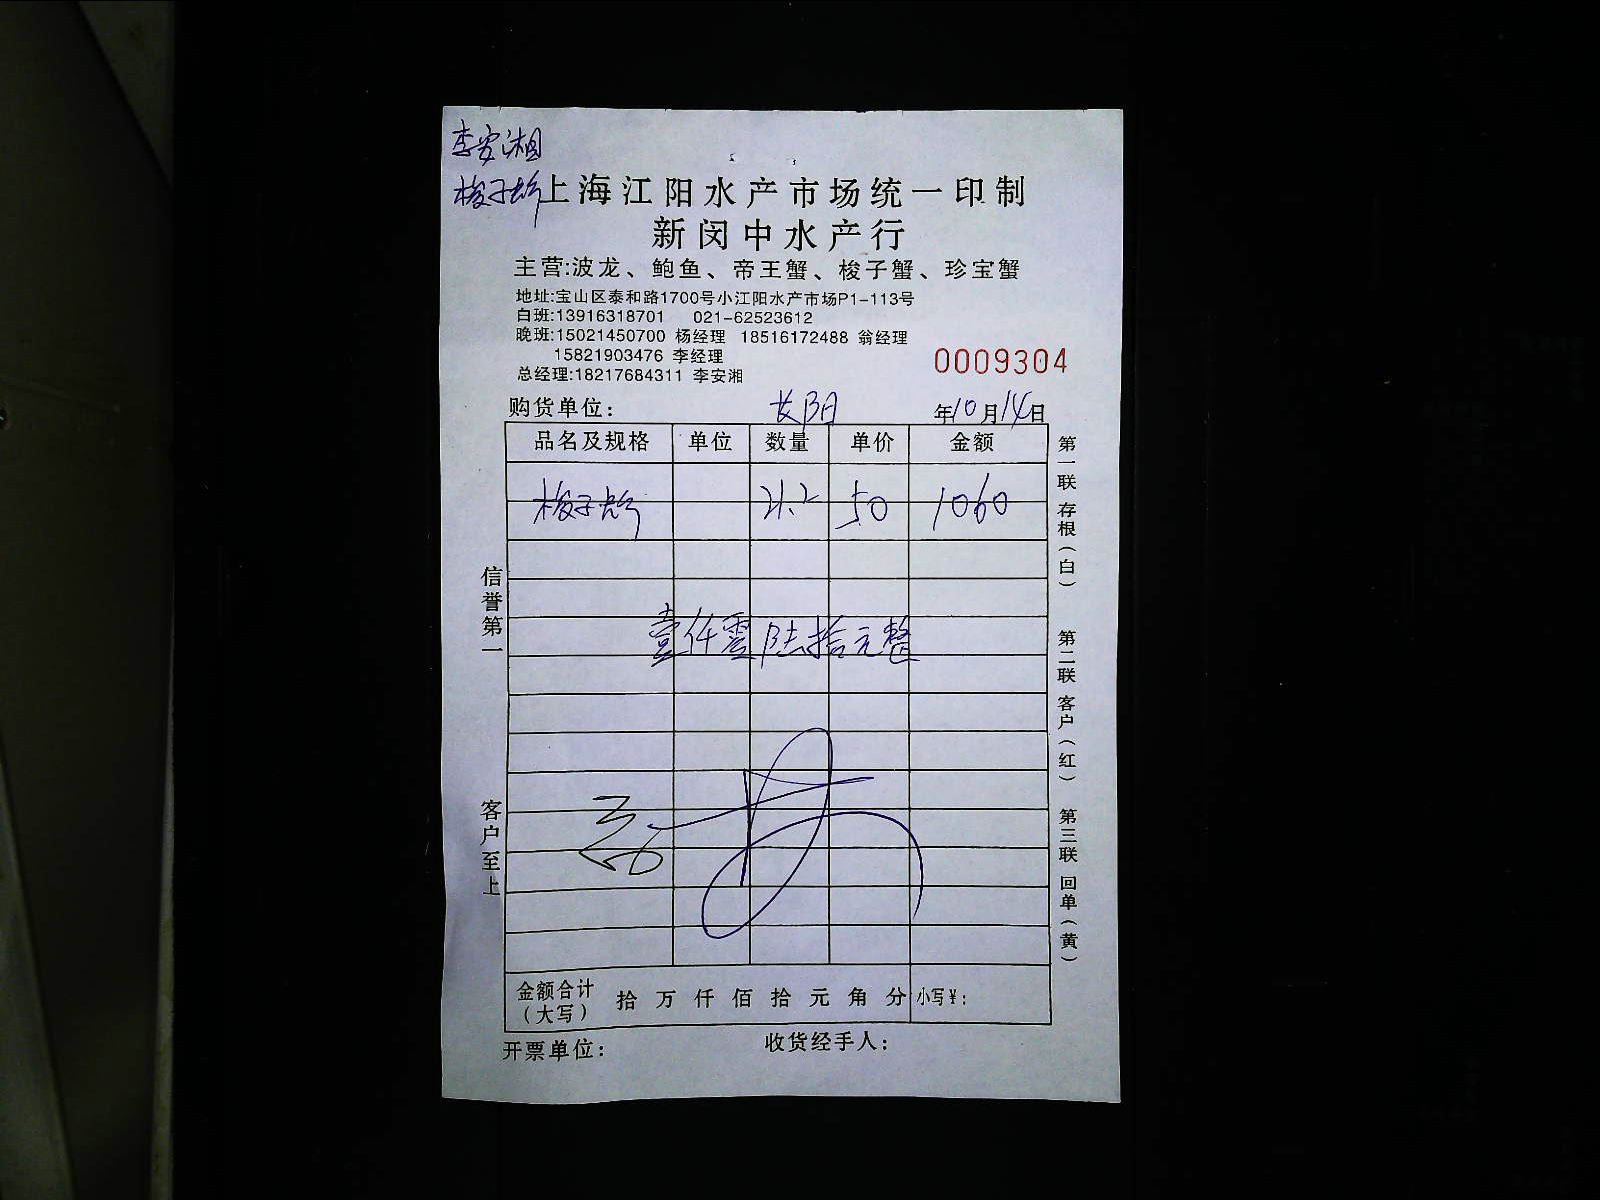 李安湘
梭子蟹
上海江阳水产市场统一印制
新闵中水产行
主营:波龙、鲍鱼、帝王蟹、梭子蟹、珍宝蟹
地址:宝山区泰和路1700号小江阳水产市场P1-113号
白班:13916318701 021-62523612
晚班:15021450700 杨经理 18516172488 翁经理
15821903476 李经理
总经理:18217684311 李安湘
0009304
购货单位: 长阳 年10月14日
品名及规格 单位 数量 单价 金额
梭子蟹 21.2 50 1060
壹仟零陆拾元整
金额合计(大写) 拾 万 仟 佰 拾 元 角 分 小写¥:
开票单位: 收货经手人:
信誉第一
客户至上
第一联 存根(白)
第二联 客户(红)
第三联 回单(黄)